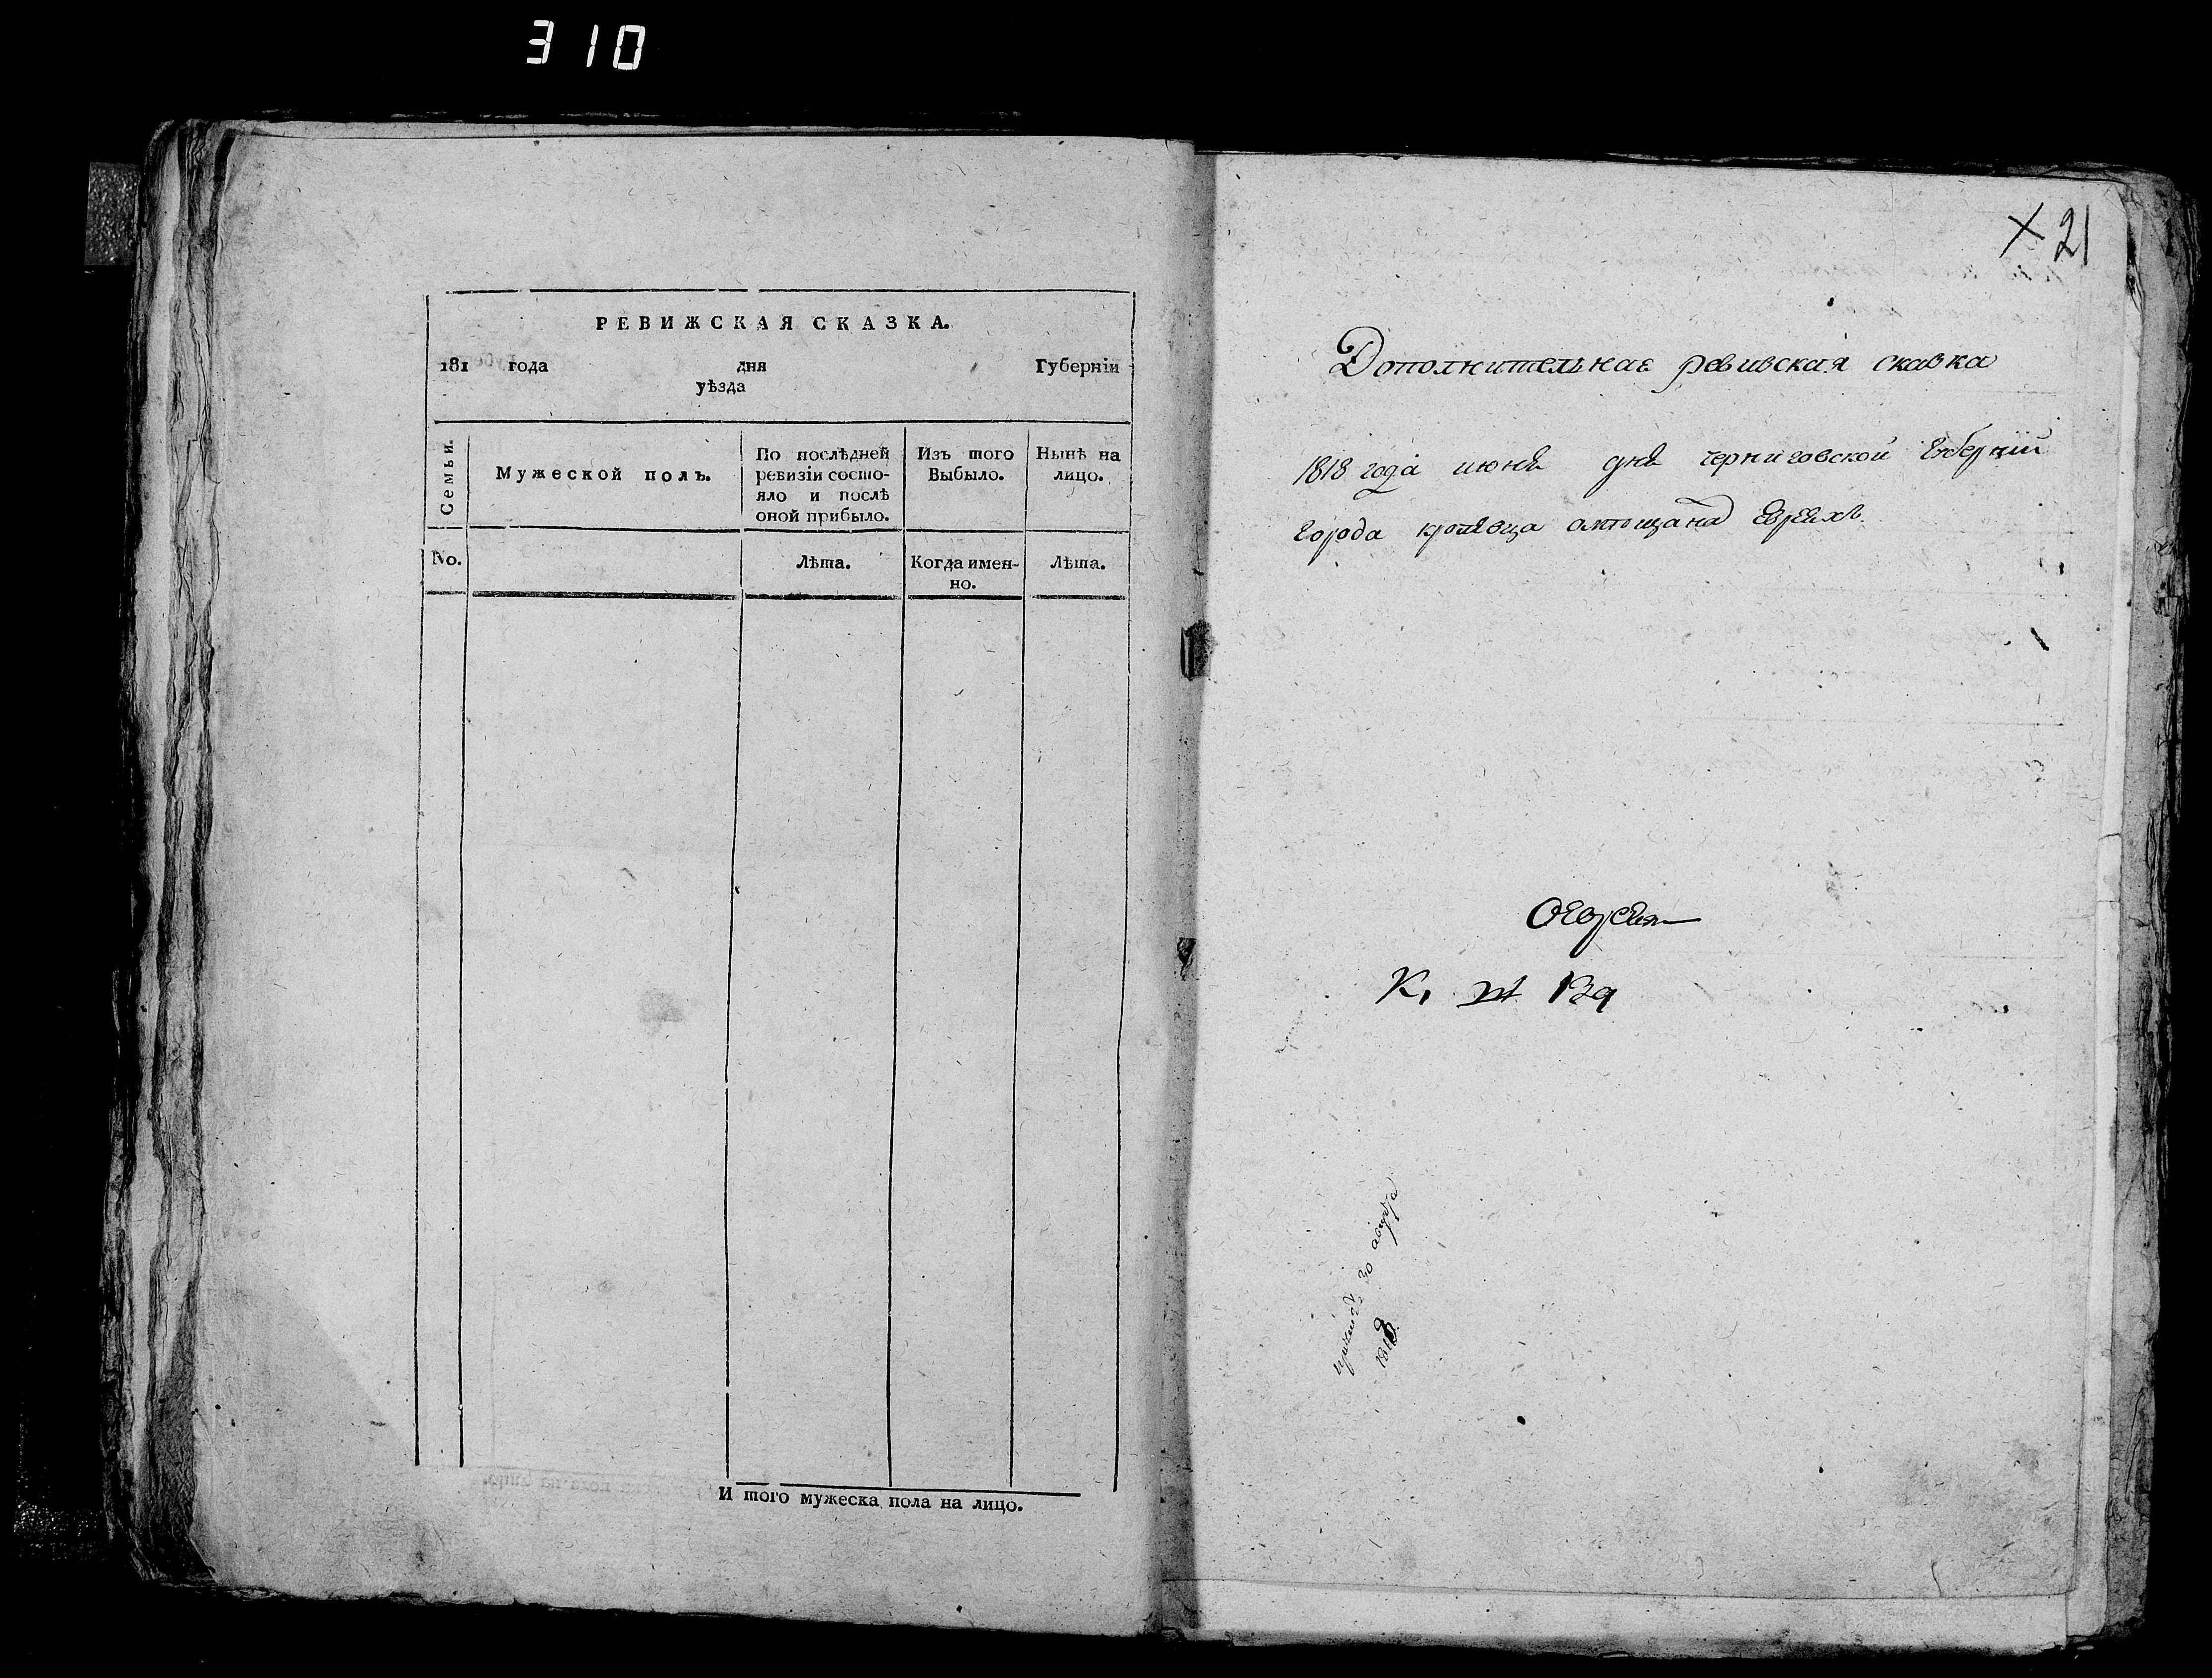 310
РЕВИЖСКАЯ СКАЗКА.
181 года дня Губерніи
уѣзда
Семьи.
Мужеской полъ.
По послѣдней
ревизіи состо-
яло и послѣ
оной прибыло.
Изъ того
Выбыло.
Нынѣ на
лицо.
No.
Лѣта.
Когда имен-
но.
Лѣта.
И того мужеска пола на лицо.
× 21
Дополнительная ревизская сказка
1818 года июня дня черниговской губернии
города кролевца омещанах евреях
К. № 139
30